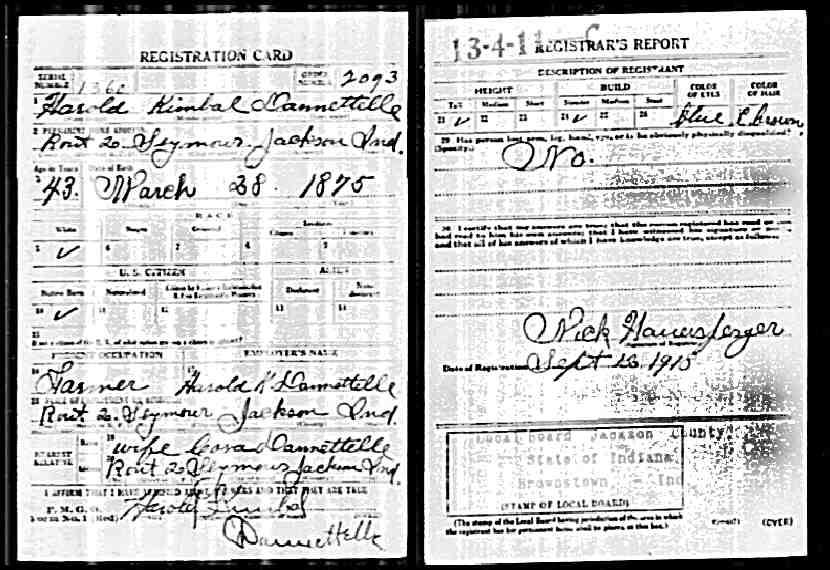 REGISTRATION CARD
SERIAL NUMBER 1360
ORDER NUMBER 2093
1 Harold Kimbal Dannettelle
2 PERMANENT HOME ADDRESS
Rout 2. Seymour Jackson Ind.
Age in Years Date of Birth
43. March 28. 1875
RACE
White Negro Oriental Indian
Citizen
5 ✓ 6 7 8 9
U. S. CITIZEN ALIEN
Native Born Naturalized Declarant
10 ✓ 11 12 13 14
15
PRESENT OCCUPATION EMPLOYER'S NAME
Farmer Harold K Dannettelle
Rout 2. Seymour Jackson Ind.
NEAREST RELATIVE
Name wife Cora Dannettelle
Rout 2. Seymour Jackson Ind.
I AFFIRM THAT I HAVE VERIFIED ABOVE ANSWERS AND THAT THEY ARE TRUE
P. M. G. O.
Form No. 1 (Red)
Harold Kimbal
Dannettelle
13-4-1
REGISTRAR'S REPORT
DESCRIPTION OF REGISTRANT
HEIGHT BUILD COLOR OF EYES COLOR OF HAIR
Tall Medium Short Slender Medium Stout
21 ✓ 22 23 24 ✓ 25 26 blue brown
29 Has person lost arm, leg, hand, eye, or is he obviously physically disqualified?
(Specify.)
No.
30. I certify that my answers are true; that the person registered has read or has
had read to him his own answers; that I have witnessed his signature or
and that all of his answers of which I have knowledge are true, except as follows:
Nick
Date of Registration Sept 12 1918
Local board Jackson County
State of Indiana
Brownstown, - Ind
(STAMP OF LOCAL BOARD)
(The stamp of the Local Board having jurisdiction of the area in which
the registrant has his permanent home shall be placed in this box.)
(OVER)